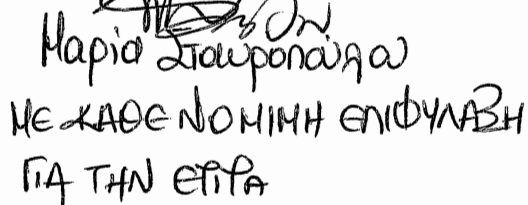 Μαρία Σταυροπούλου
ΜΕ ΚΑΘΕ ΝΟΜΙΜΗ ΕΠΙΦΥΛΑΞΗ
ΓΙΑ ΤΗΝ